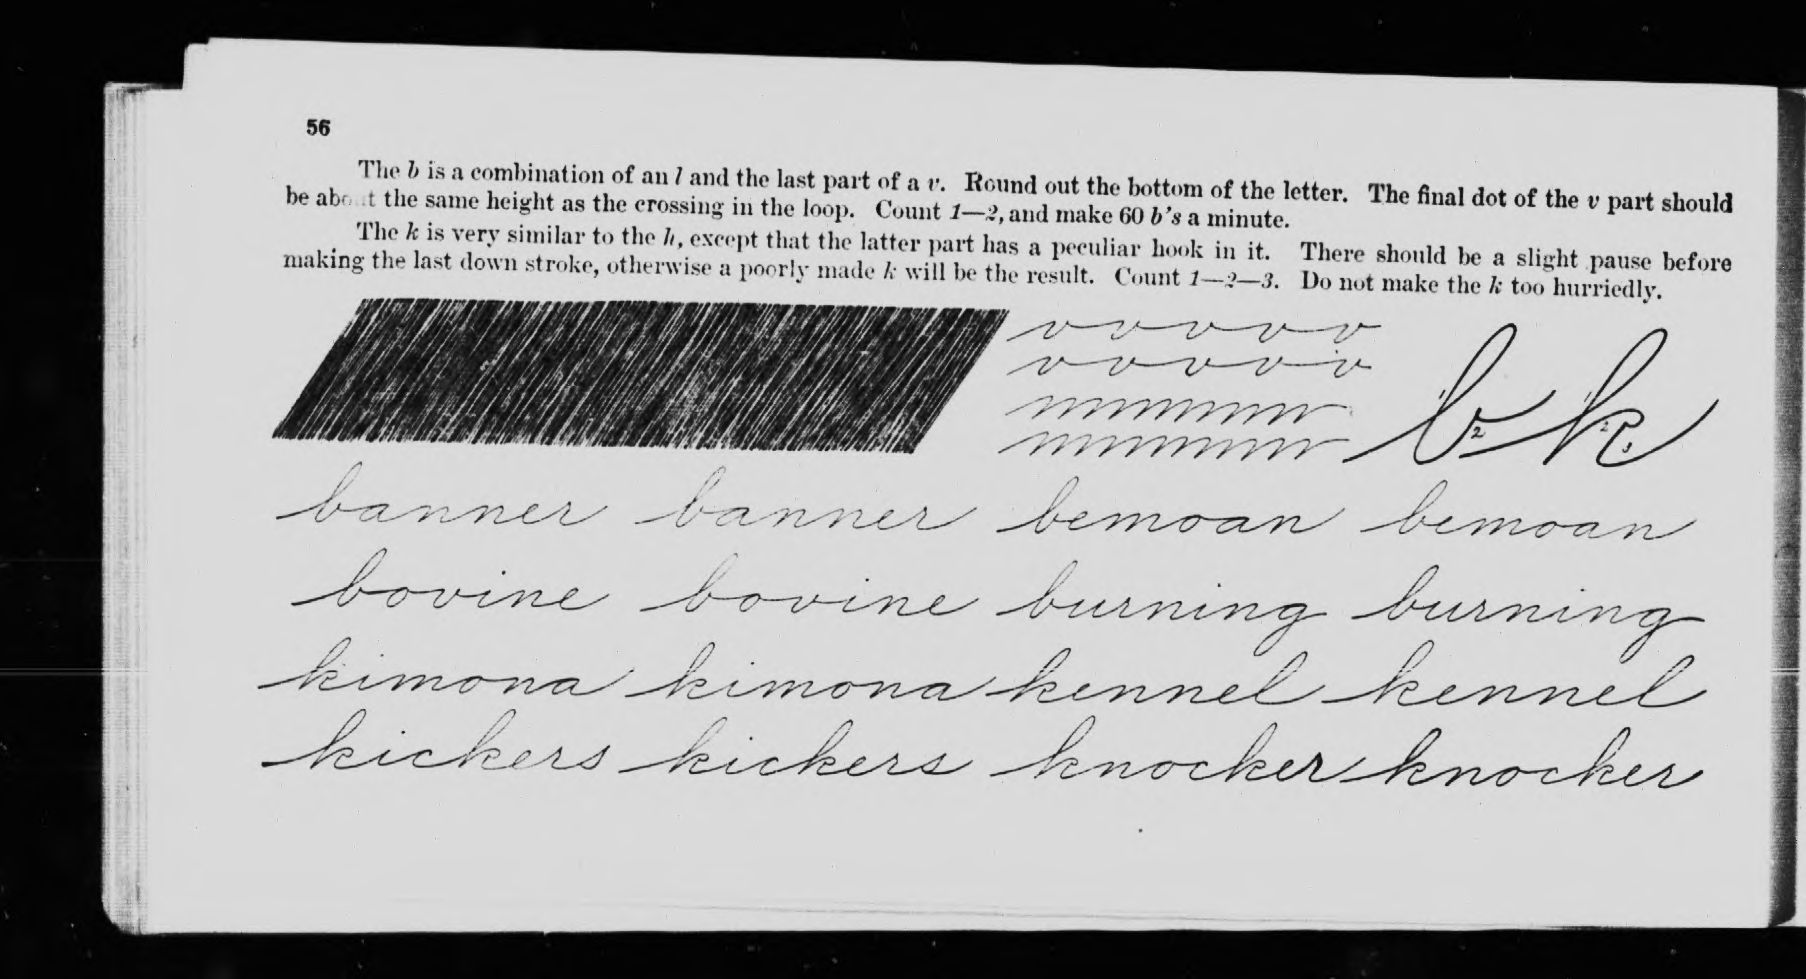 56
The b is a combination of an l and the last part of a v. Round out the bottom of the letter. The final dot of the v part should
be about the same height as the crossing in the loop. Count 1—2, and make 60 b's a minute.
The k is very similar to the h, except that the latter part has a peculiar hook in it. There should be a slight pause before
making the last down stroke, otherwise a poorly made k will be the result. Count 1—2—3. Do not make the k too hurriedly.
v v v v v
v v v v v
1 b 2 1 k 2 3
banner banner bemoan bemoan
bovine bovine burning burning
kimona kimona kennel kennel
kickers kickers knocker knocker